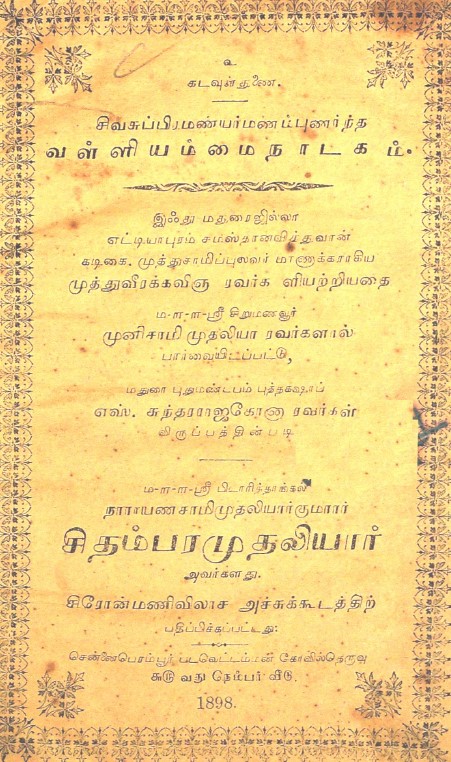 உ
கடவுள்துணை.
சிவசுப்பிரமண்யர்மணம்புணர்ந்த
வள்ளியம்மைநாடகம்.
இஃது மதுரைஜில்லா
எட்டியாபுரம் சமஸ்தானவித்துவான்
கடிகை. முத்துசாமிப்புலவர் மாணாக்கராகிய
முத்துவீரக்கவிஞ ரவர்க ளியற்றியதை
ம-ா-ா-ஸ்ரீ சிறுமணவூர்
முனிசாமி முதலியா ரவர்களால்
பார்வையிடப்பட்டு,
மதுரை புதுமண்டபம் புத்தகஷாப்
எஸ். சுந்தரராஜகோனா ரவர்கள்
விருப்பத்தின்படி
ம-ா-ா-ஸ்ரீ
நாராயணசாமிமுதலியார்குமாரர்
சிதம்பரமுதலியார்
அவர்களது.
சிரோன்மணிவிலாச அச்சுக்கூடத்திற்
பதிப்பிக்கப்பட்டது:
சென்னைபெரம்பூர் படவேட்டம்மன் கோவில்தெருவு
வது நெம்பர் வீடு.
1898.